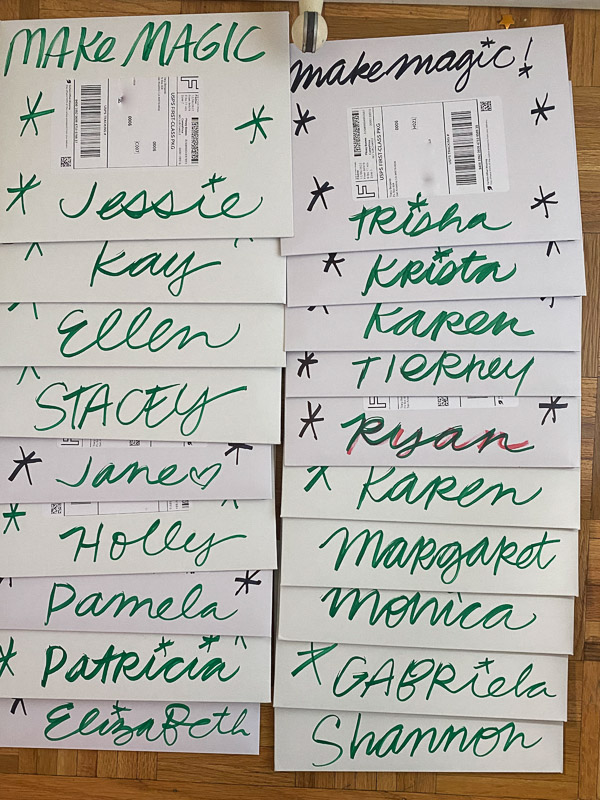 MAKE MAGIC
USPS FIRST-CLASS PKG
Jessie
Kay
Ellen
STACEY
Jane
Holly
Pamela
Patricia
Elizabeth
make magic!
USPS FIRST-CLASS PKG
F
Trisha
Krista
Karen
TIERNEY
Ryan
Karen
Margaret
Monica
GABRiela
Shannon